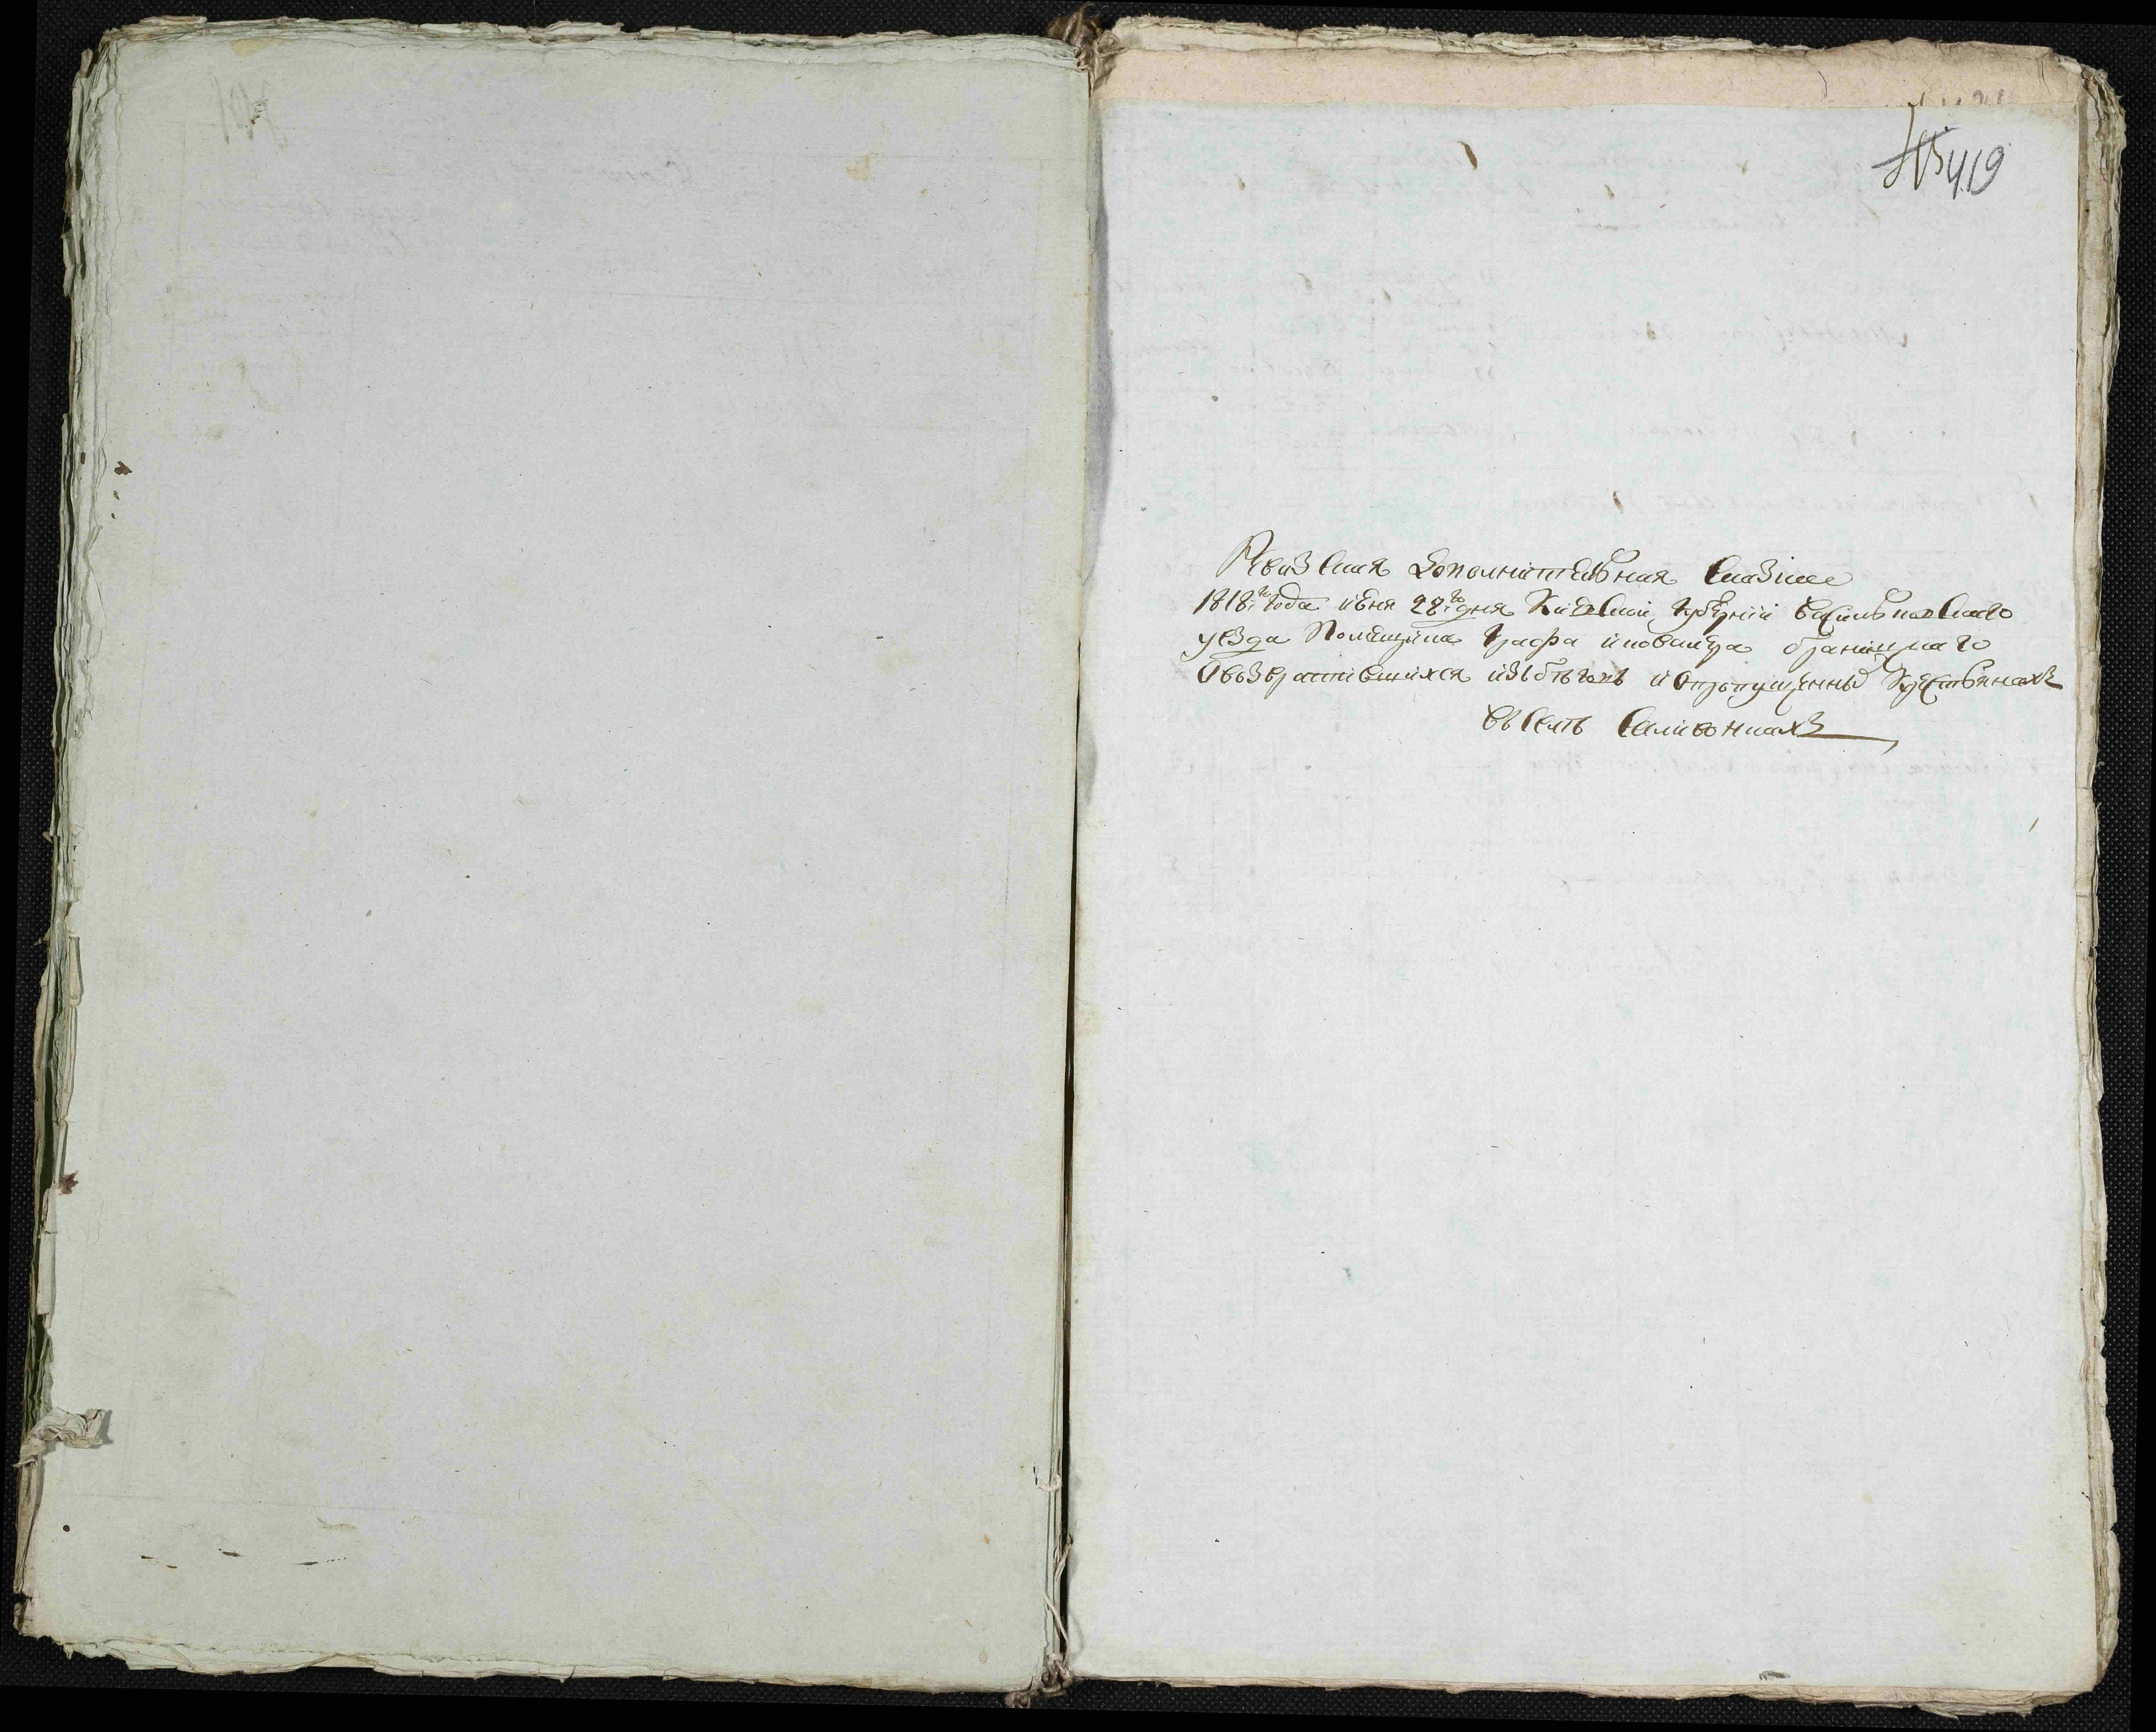 419
Ревизская дополнительная сказка
1818го года июня 28го дня Киевской губернии Васильковского
уезда Помещика графа и кавалера браницкаго
О возвратившихся изъ бегов и о пропущенных крестьянахъ
въ селе Саливонках